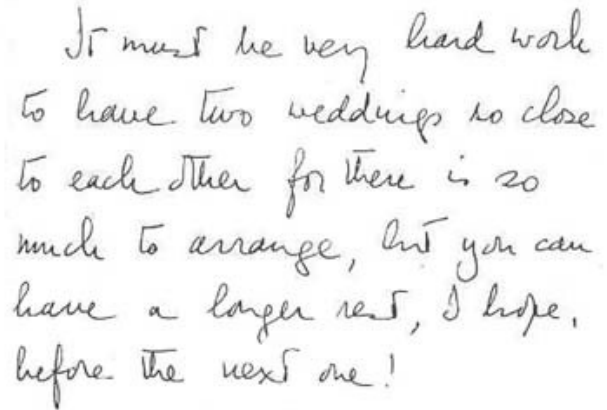 It must be very hard work
to have two weddings so close
to each other for there is so
much to arrange, but you can
have a longer rest, I hope,
before the next one!